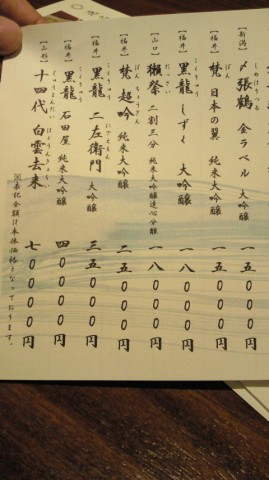 【新潟】 〆張鶴 金ラベル 大吟醸 一五〇〇〇円
【福井】 梵 日本の翼 純米大吟醸 一五〇〇〇円
【福井】 黒龍 しずく 大吟醸 一八〇〇〇円
【山口】 獺祭 二割三分 純米大吟醸遠心分離 一八〇〇〇円
【福井】 梵 超吟 純米大吟醸 二五〇〇〇円
【福井】 黒龍 二左衛門 大吟醸 三五〇〇〇円
【福井】 黒龍 石田屋 純米大吟醸 四〇〇〇〇円
【山形】 十四代 白雲去来 七〇〇〇〇円
※表記金額は本体価格となっております。